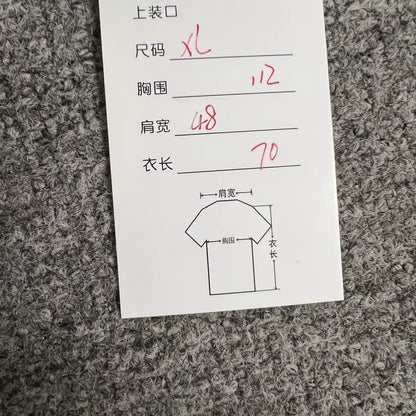 上装口
尺码 XL
胸围 112
肩宽 48
衣长 70
肩宽
胸围
衣长